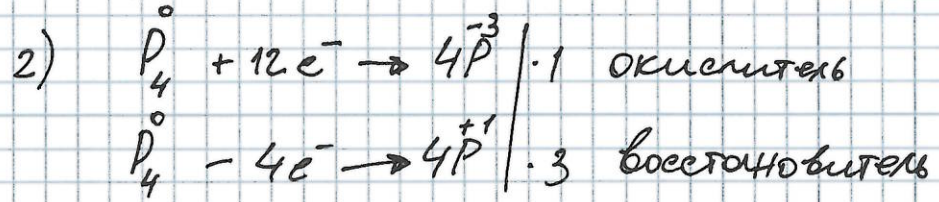 2) P₄⁰ + 12e⁻ → 4P⁻³ | ·1 окислитель
P₄⁰ − 4e⁻ → 4P⁺¹ | ·3 восстановитель